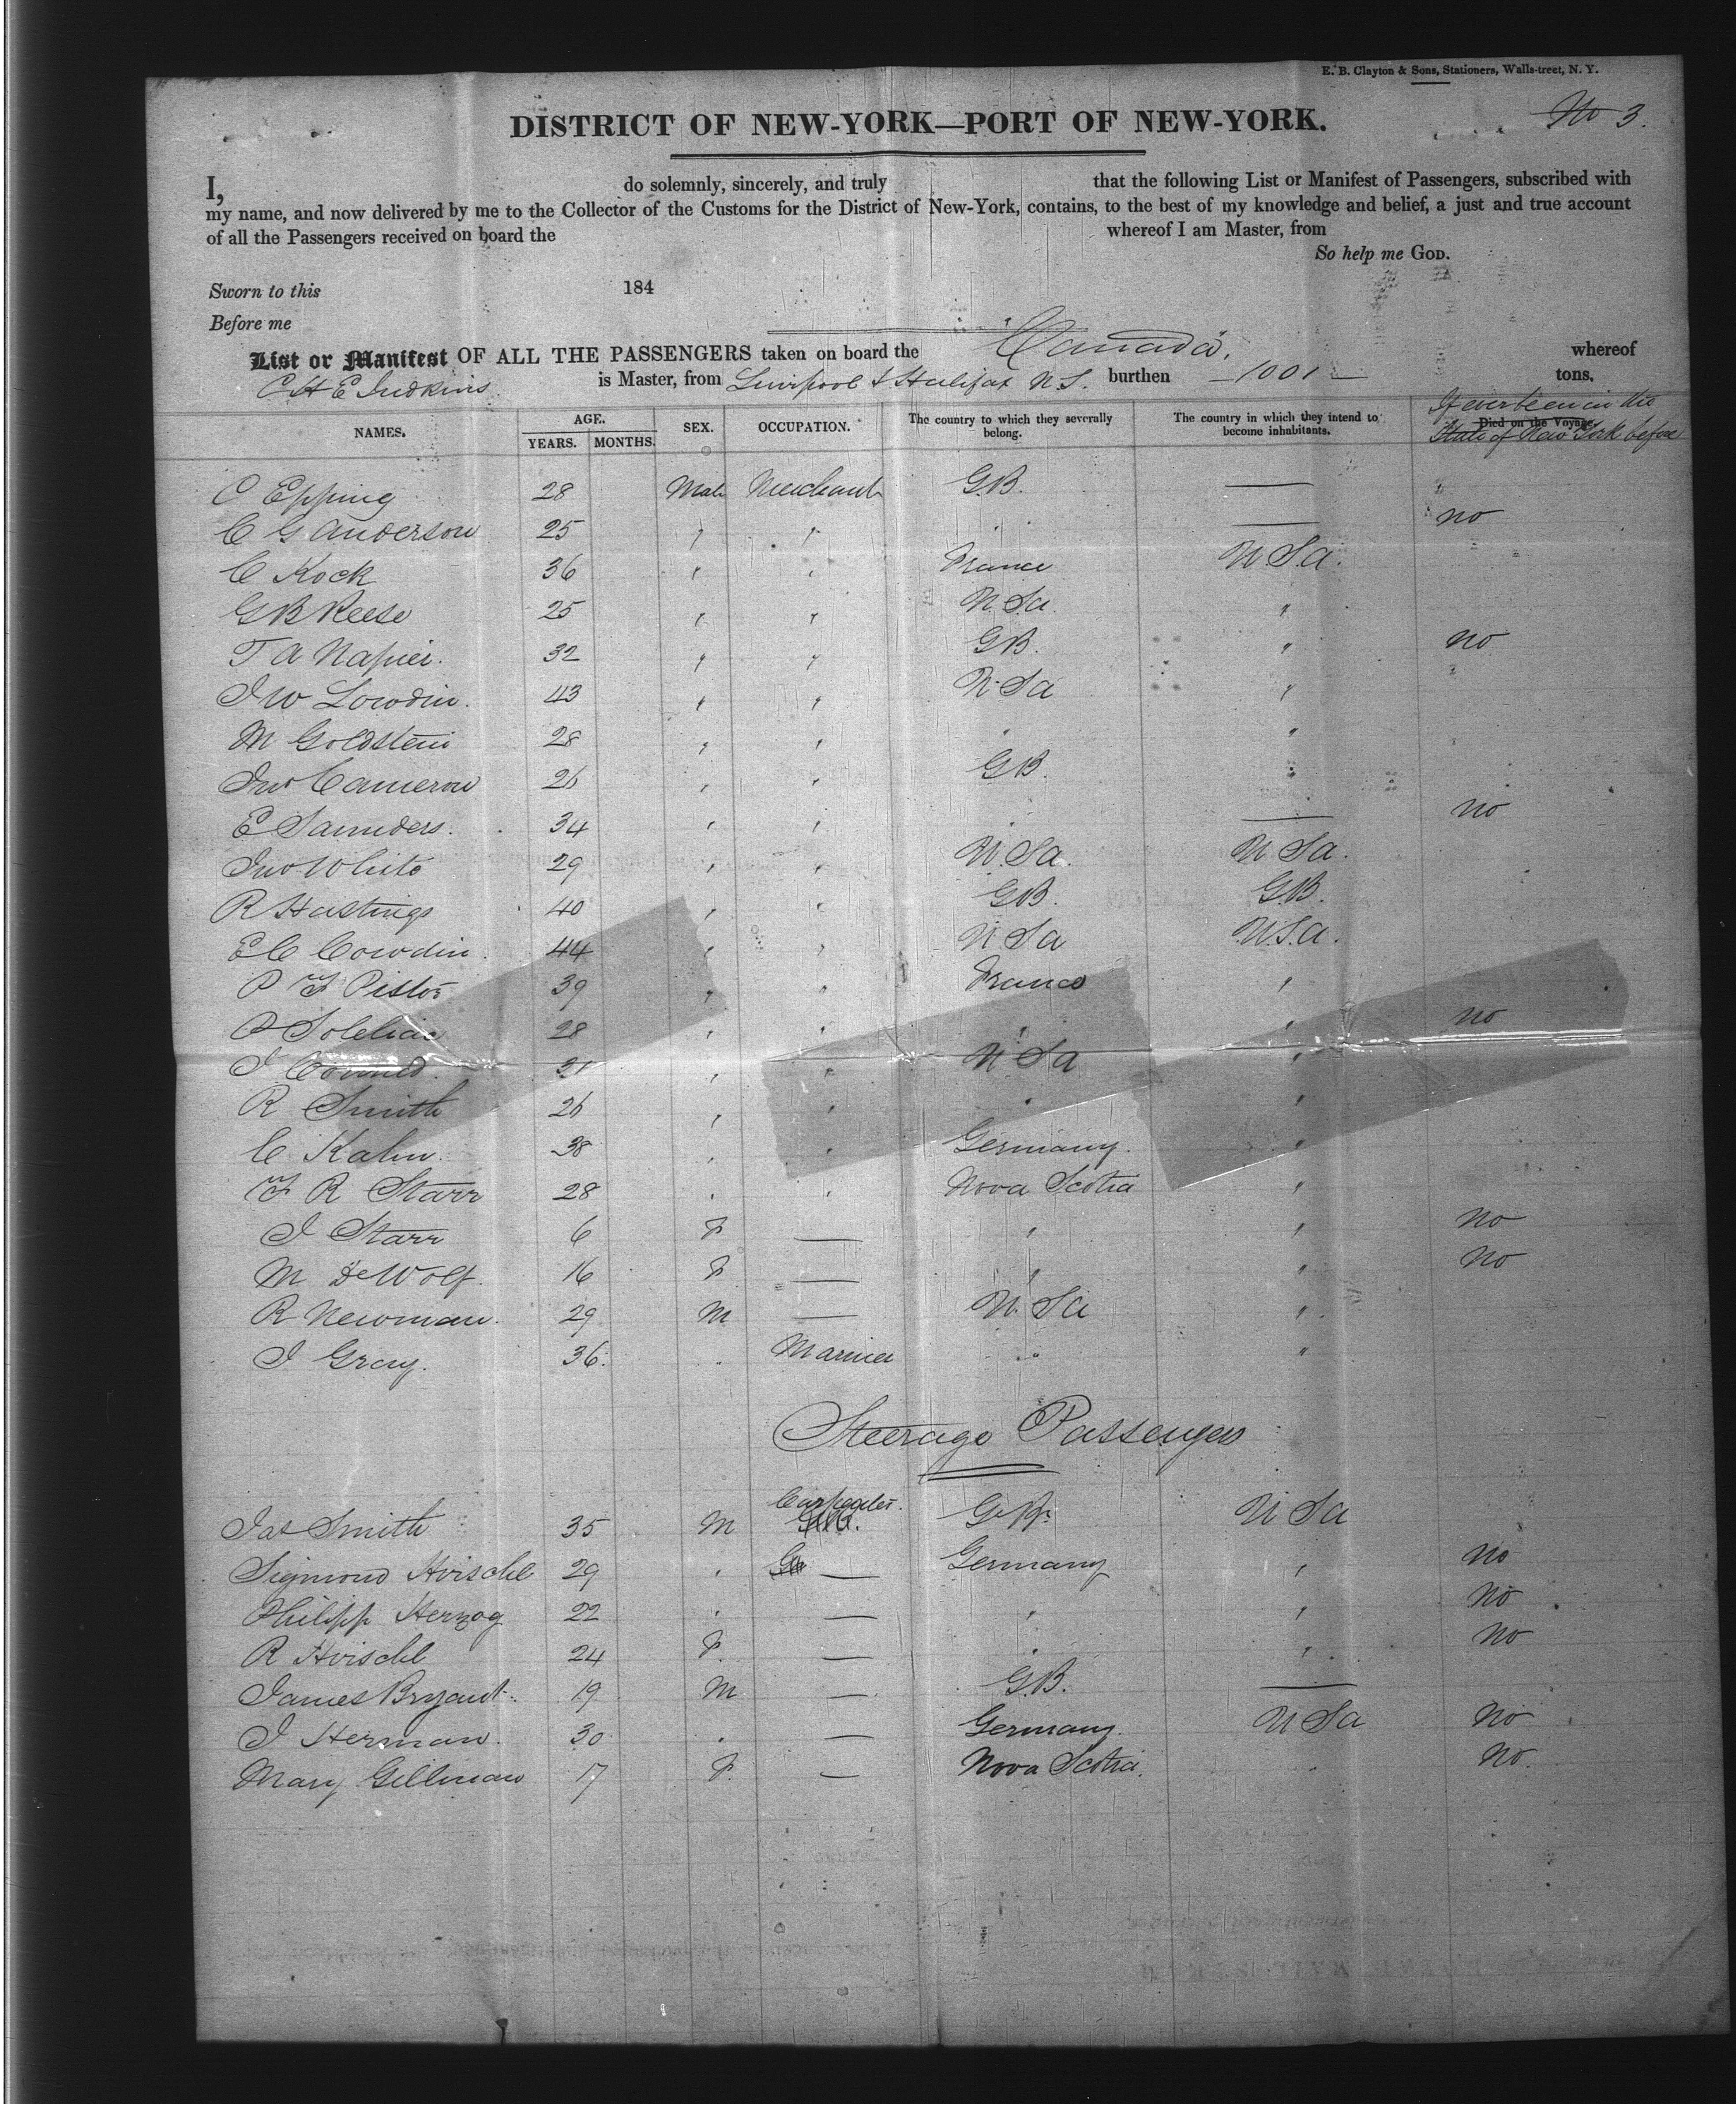 E. B. Clayton & Sons, Stationers, Walls-treet, N. Y.
No 3.
DISTRICT OF NEW-YORK—PORT OF NEW-YORK.
I, do solemnly, sincerely, and truly that the following List or Manifest of Passengers, subscribed with
my name, and now delivered by me to the Collector of the Customs for the District of New-York, contains, to the best of my knowledge and belief, a just and true account
of all the Passengers received on board the whereof I am Master, from
So help me GOD.
Sworn to this 184
Before me
List or Manifest OF ALL THE PASSENGERS taken on board the Canada, whereof
C H E Judkins is Master, from Liverpool & Halifax N.S. burthen 1001 tons.
NAMES. AGE. YEARS. MONTHS. SEX. OCCUPATION. The country to which they severally belong. The country in which they intend to become inhabitants. Died on the Voyage. If ever been in the State of New York before
C Epping 28 Male Merchant G.B. —
C G Anderson 25 " " " — no
C Kock 36 " " France U.S.a.
G B Reese 25 " " U.Sa. "
T A Napier. 32 " " G.B. " no
J W Lowdin. 43 " " U.Sa "
M Goldstein 28 " " " "
Jno Cameron 26 " " G.B. "
E Saunders. 34 " " " — no
Jno White 29 " " U.Sa. U Sa.
R Hastings 40 " " G.B. G.B.
E C Cowdin. 44 " " U Sa U.S.a.
P F Pistor 39 " " France "
28 " " " " no
J " " U Sa "
R Smith 26 " " " "
C Kahn. 38 " " Germany. "
F R Starr 28 " " Nova Scotia "
J Starr 6 F — " " no
M DeWolf. 16 F — " " no
R Newman. 29 M — U. Sa "
J Gray. 36. " Mariner " "
Steerage Passengers
Jas Smith 35 M Carpenter. G.Br. U Sa
Sigmond Hirschl 29 " — Germany " no
Philipp Herzog 22 " — " " no
R Hirschl 24 F. — " " no
James Bryant. 19 M — G.B. —
J Herman. 30 " — Germany. U Sa no
Mary Gillman 17 F. — Nova Scotia. " no.